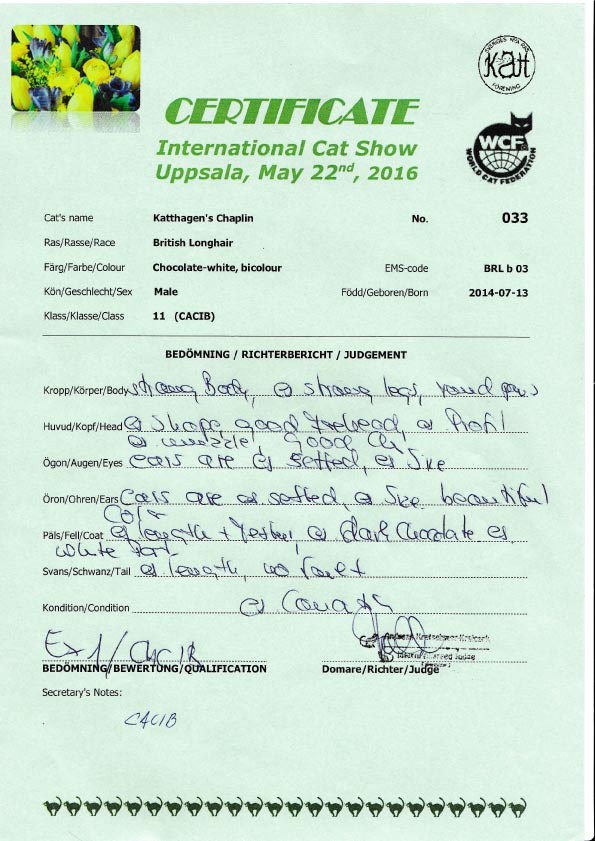 SVERIGES NYA RAS
KATT
FÖRENING
CERTIFICATE
International Cat Show
Uppsala, May 22nd, 2016
WCF
WORLD CAT FEDERATION
Cat's name Katthagen's Chaplin No. 033
Ras/Rasse/Race British Longhair
Färg/Farbe/Colour Chocolate-white, bicolour EMS-code BRL b 03
Kön/Geschlecht/Sex Male Född/Geboren/Born 2014-07-13
Klass/Klasse/Class 11 (CACIB)
BEDÖMNING / RICHTERBERICHT / JUDGEMENT
Kropp/Körper/Body strong Body, strong legs, round paws
Huvud/Kopf/Head shape, good forehead, Profil
good
Ögon/Augen/Eyes ears are setted, size
Öron/Ohren/Ears ears are setted, size beautiful
Color
Päls/Fell/Coat length + dark chocolate
white
Svans/Schwanz/Tail length, no
Kondition/Condition
Ex1/CACIB
BEDÖMNING/BEWERTUNG/QUALIFICATION Domare/Richter/Judge
Secretary's Notes:
CACIB